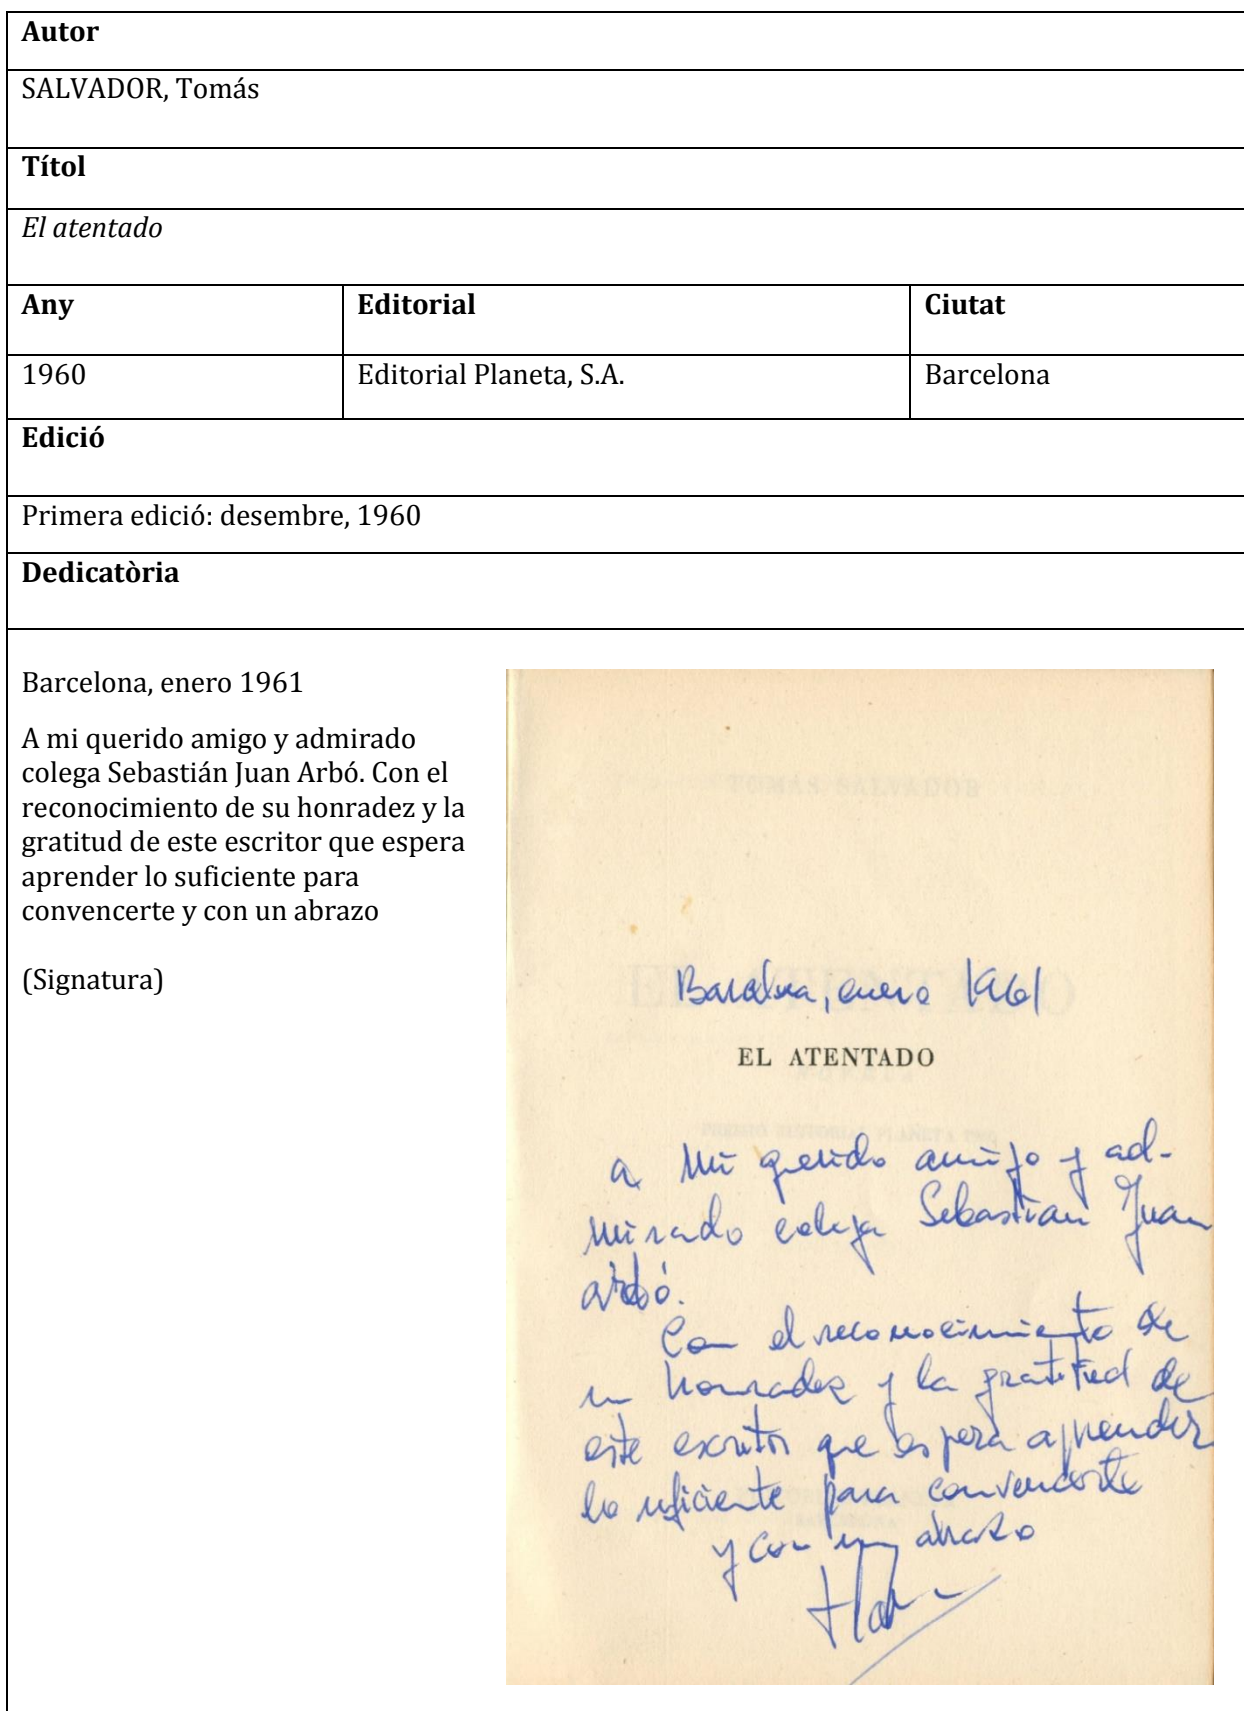 Autor
SALVADOR, Tomás
Títol
El atentado
Any Editorial Ciutat
1960 Editorial Planeta, S.A. Barcelona
Edició
Primera edició: desembre, 1960
Dedicatòria
Barcelona, enero 1961
A mi querido amigo y admirado
colega Sebastián Juan Arbó. Con el
reconocimiento de su honradez y la
gratitud de este escritor que espera
aprender lo suficiente para
convencerte y con un abrazo
(Signatura)
TOMÁS SALVADOR
EL ATENTADO
Barcelona, enero 1961
EL ATENTADO
PREMIO EDITORIAL PLANETA 1960
a mi querido amigo y ad-
mirado colega Sebastian Juan
arbó.
Con el reconocimiento de
su honradez y la gratitud de
este escritor que espera aprender
lo suficiente para convencerte
y con un abrazo